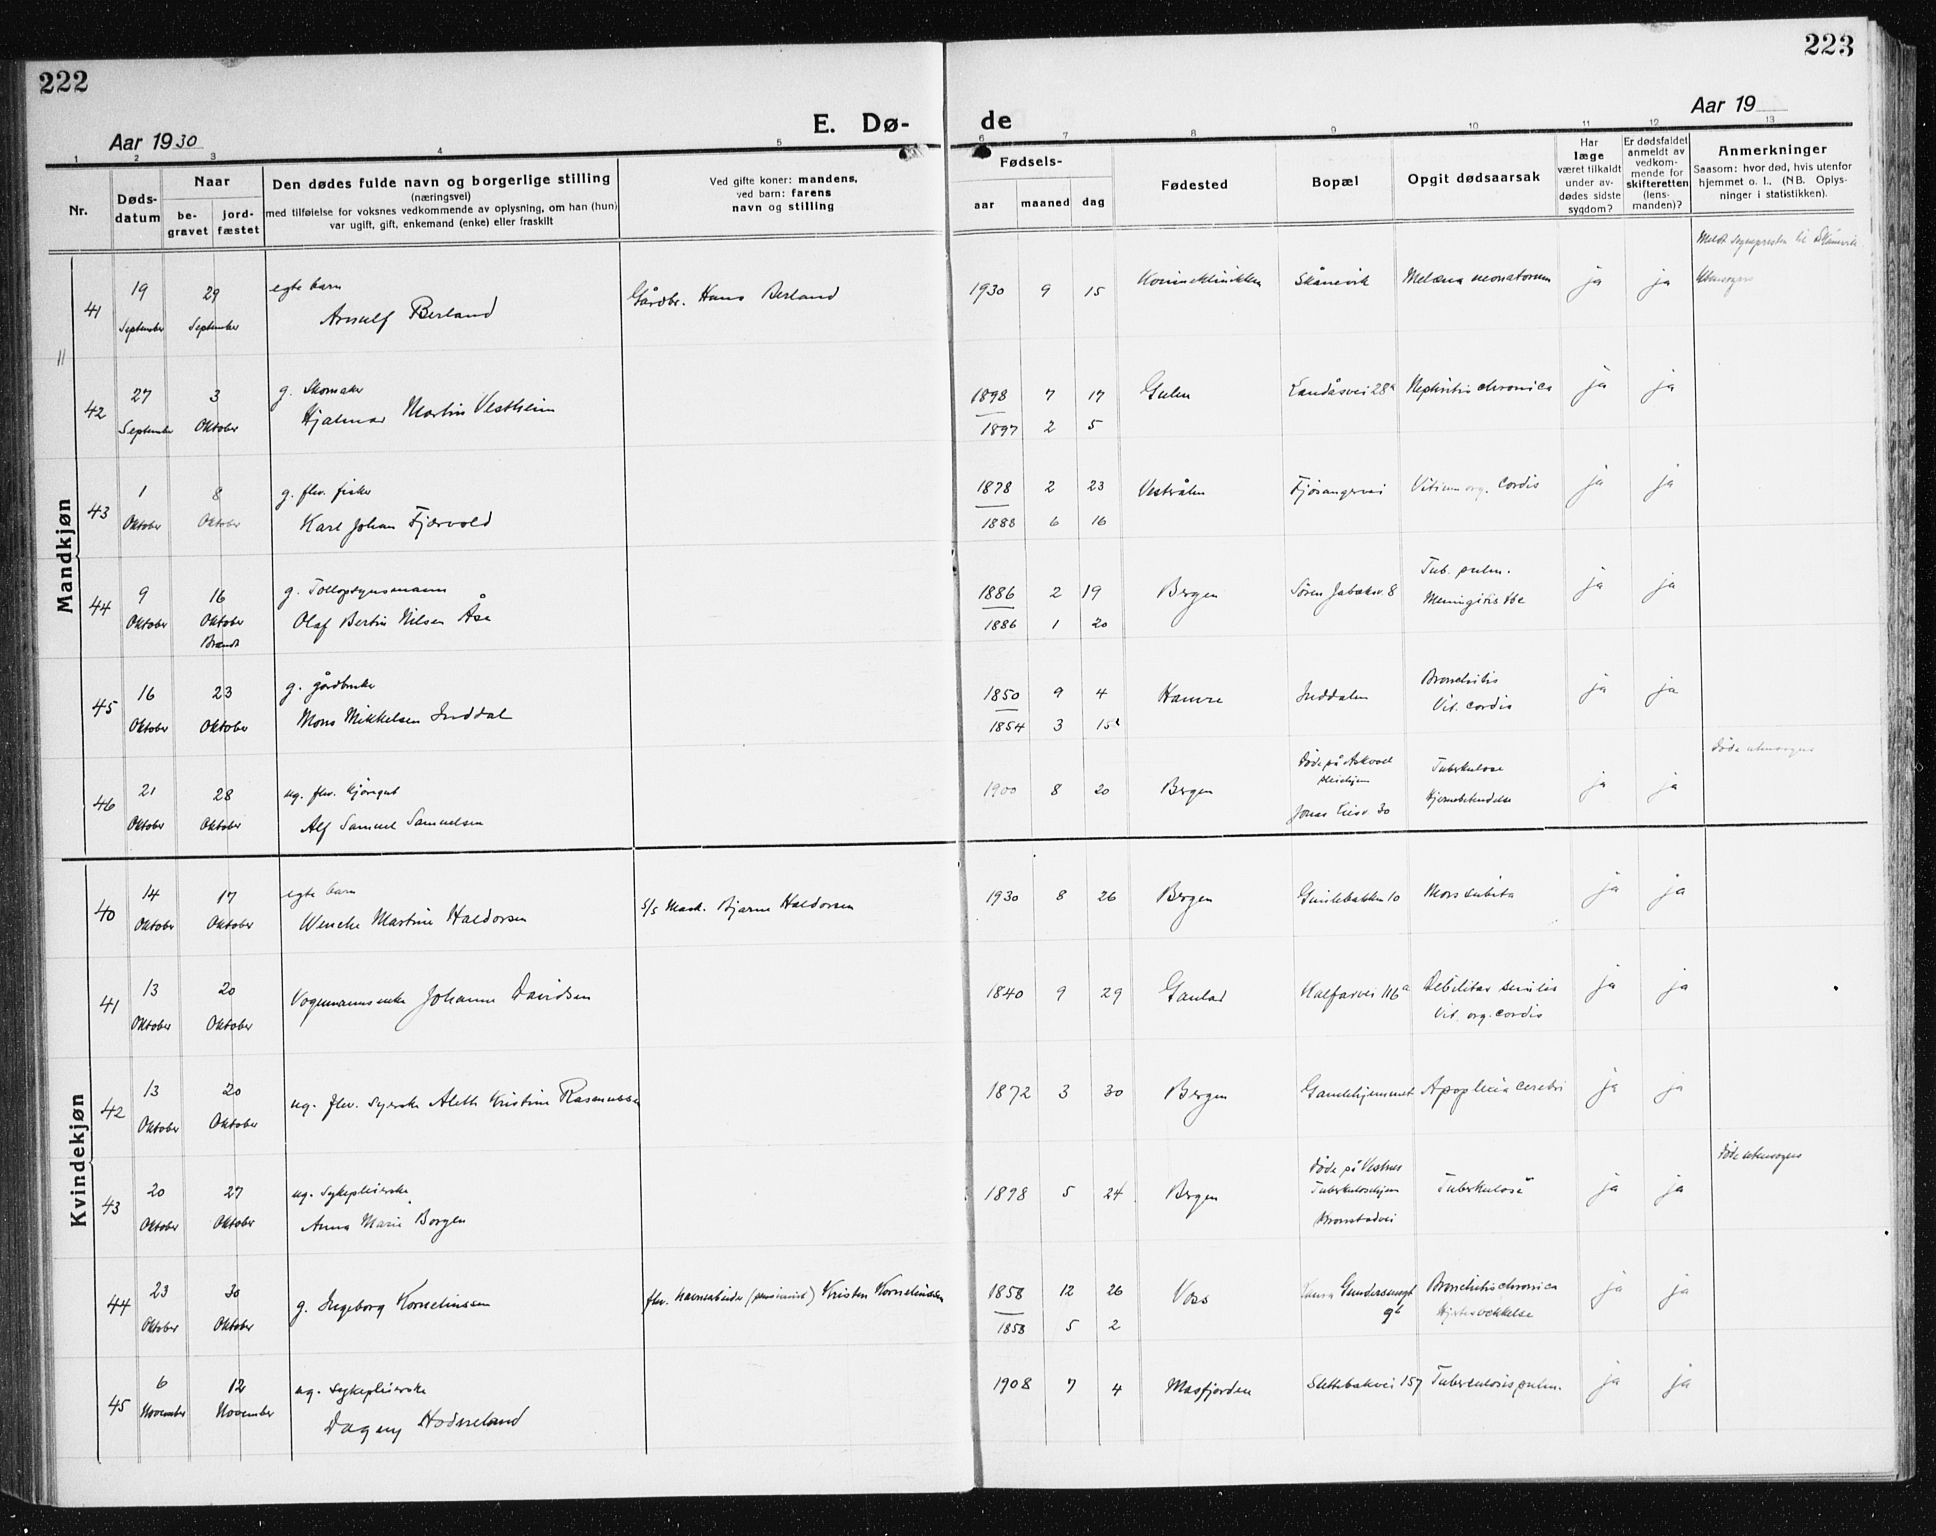 222
223
Aar 1930
E. Dø-
de
Aar 19
1 2 3 4 5 6 7 8 9 10 11 12 13
Nr.
Døds-
datum
Naar
be-
gravet
jord-
fæstet
Den dødes fulde navn og borgerlige stilling
(næringsvei)
med tilføielse for voksnes vedkommende av oplysning, om han (hun)
var ugift, gift, enkemand (enke) eller fraskilt
Ved gifte koner: mandens,
ved barn: farens
navn og stilling
Fødsels-
aar
maaned
dag
Fødested
Bopæl
Opgit dødsaarsak
Har
læge
været tilkaldt
under av-
dødes sidste
sygdom?
Er dødsfaldet
anmeldt av
vedkom-
mende for
skifteretten
(lens-
manden)?
Anmerkninger
Saasom: hvor død, hvis utenfor
hjemmet o. l., (NB. Oplys-
ninger i statistikken).
Mandkjøn
11
Meldt sogneprest til Skånevik
41 19 September 29 September egte barn
Arnulf Berland Gårdbr. Hans Berland 1930 9 15 Kvinneklinikken Skånevik Melæna neonatorum ja ja utensogns
42 27 September 3 Oktober g. Skomaker
Hjalmar Martin Vestheim 1898 7 17 Gulen Landåsvei 28a Nephritis chronica ja ja
1897 2 5
43 1 Oktober 8 Oktober g. fhv. fisker
Karl Johan Fjærvold 1878 2 23 Vesterålen Fjøsangervei Vitium org. cordis ja ja
1888 6 16
44 9 Oktober 16 Oktober Brandt g. Tollopsynsmann
Olaf Bertin Nilsen Åse 1886 2 19 Bergen Søren Jabæksv. 8 Tub. pulm.
Meningitis tbc ja ja
1886 1 20
45 16 Oktober 23 Oktober g. gårdbruker
Mons Mikkelsen Inddal 1850 9 4 Hamre Inddalen Bronchitis
Vit. cordis ja ja
1854 3 15
46 21 Oktober 28 Oktober ug. fhv. hjørngut
Alf Samuel Samuelsen 1900 8 20 Bergen Døde på Askvoll
pleiehjem
Jonas Liesv. 30 Tuberkulose
Hjernebetendelse ja ja Døde utensogns
Kvindekjøn
40 14 Oktober 17 Oktober egte barn
Wenche Martine Haldorsen s/s Mask. Bjarne Haldorsen 1930 8 26 Bergen Gimlebakken 10 Mors subita ja ja
41 13 Oktober 20 Oktober Vognmannsenke Johanne Davidsen 1840 9 29 Gaular Kalfarvei 116a Debilitas senilis
Vit. org. cordis ja ja
42 13 Oktober 20 Oktober ug. fhv. syerske Aleth Kristine Rasmussen 1872 3 30 Bergen Gamlehjemmet Apoplexia cerebri ja ja
43 20 Oktober 27 Oktober ug. sykepleierske
Anna Marie Borgen 1898 5 24 Bergen Døde på Vestnes
Tuberkulosehjem
Kronstadvei Tuberkulose ja ja Døde utensogns
44 23 Oktober 30 Oktober g. Ingeborg Korneliussen fhv. havnearbeider (pensionist) Kristen Korneliussen 1858 12 26 Voss Gundersensgt
9b Bronchitis chronica
Hjertesvekkelse ja ja
1858 5 2
45 6 November 12 November ug. sykepleierske
Dagny Hodneland 1908 7 4 Masfjorden Slettebakvei 157 Tuberculosis pulm. ja ja